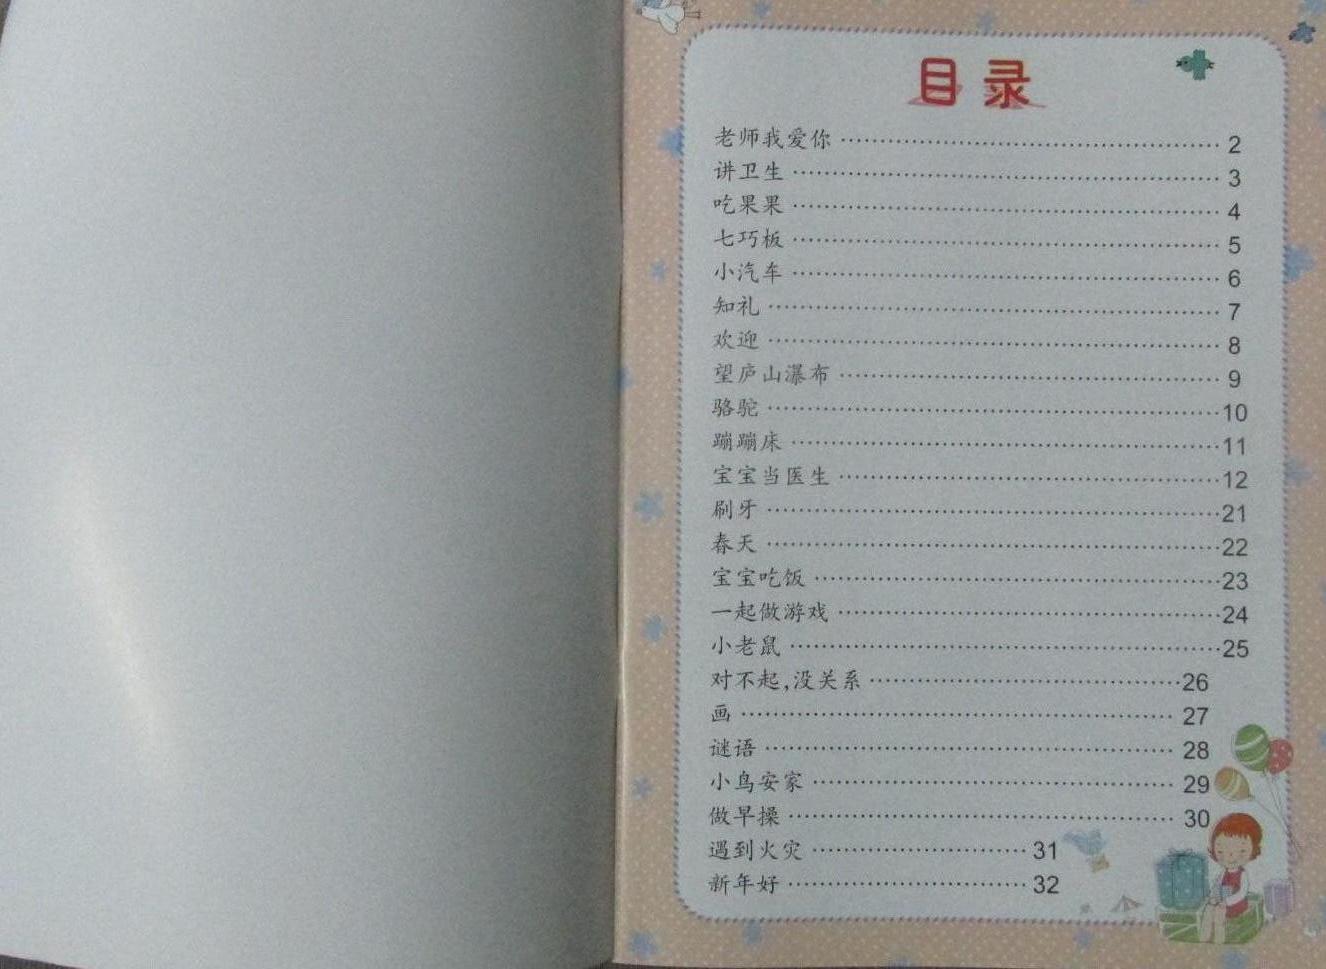 目录
老师我爱你 ………………………………… 2
讲卫生 ………………………………… 3
吃果果 ………………………………… 4
七巧板 ………………………………… 5
小汽车 ………………………………… 6
知礼 ………………………………… 7
欢迎 ………………………………… 8
望庐山瀑布 ………………………………… 9
骆驼 …………………………………10
蹦蹦床 …………………………………11
宝宝当医生 …………………………………12
刷牙 …………………………………21
春天 …………………………………22
宝宝吃饭 …………………………………23
一起做游戏 …………………………………24
小老鼠 …………………………………25
对不起,没关系 ……………………………26
画 ……………………………… 27
谜语 ……………………………… 28
小鸟安家 ……………………………… 29
做早操 ……………………………… 30
遇到火灾 ………………… 31
新年好 ………………… 32